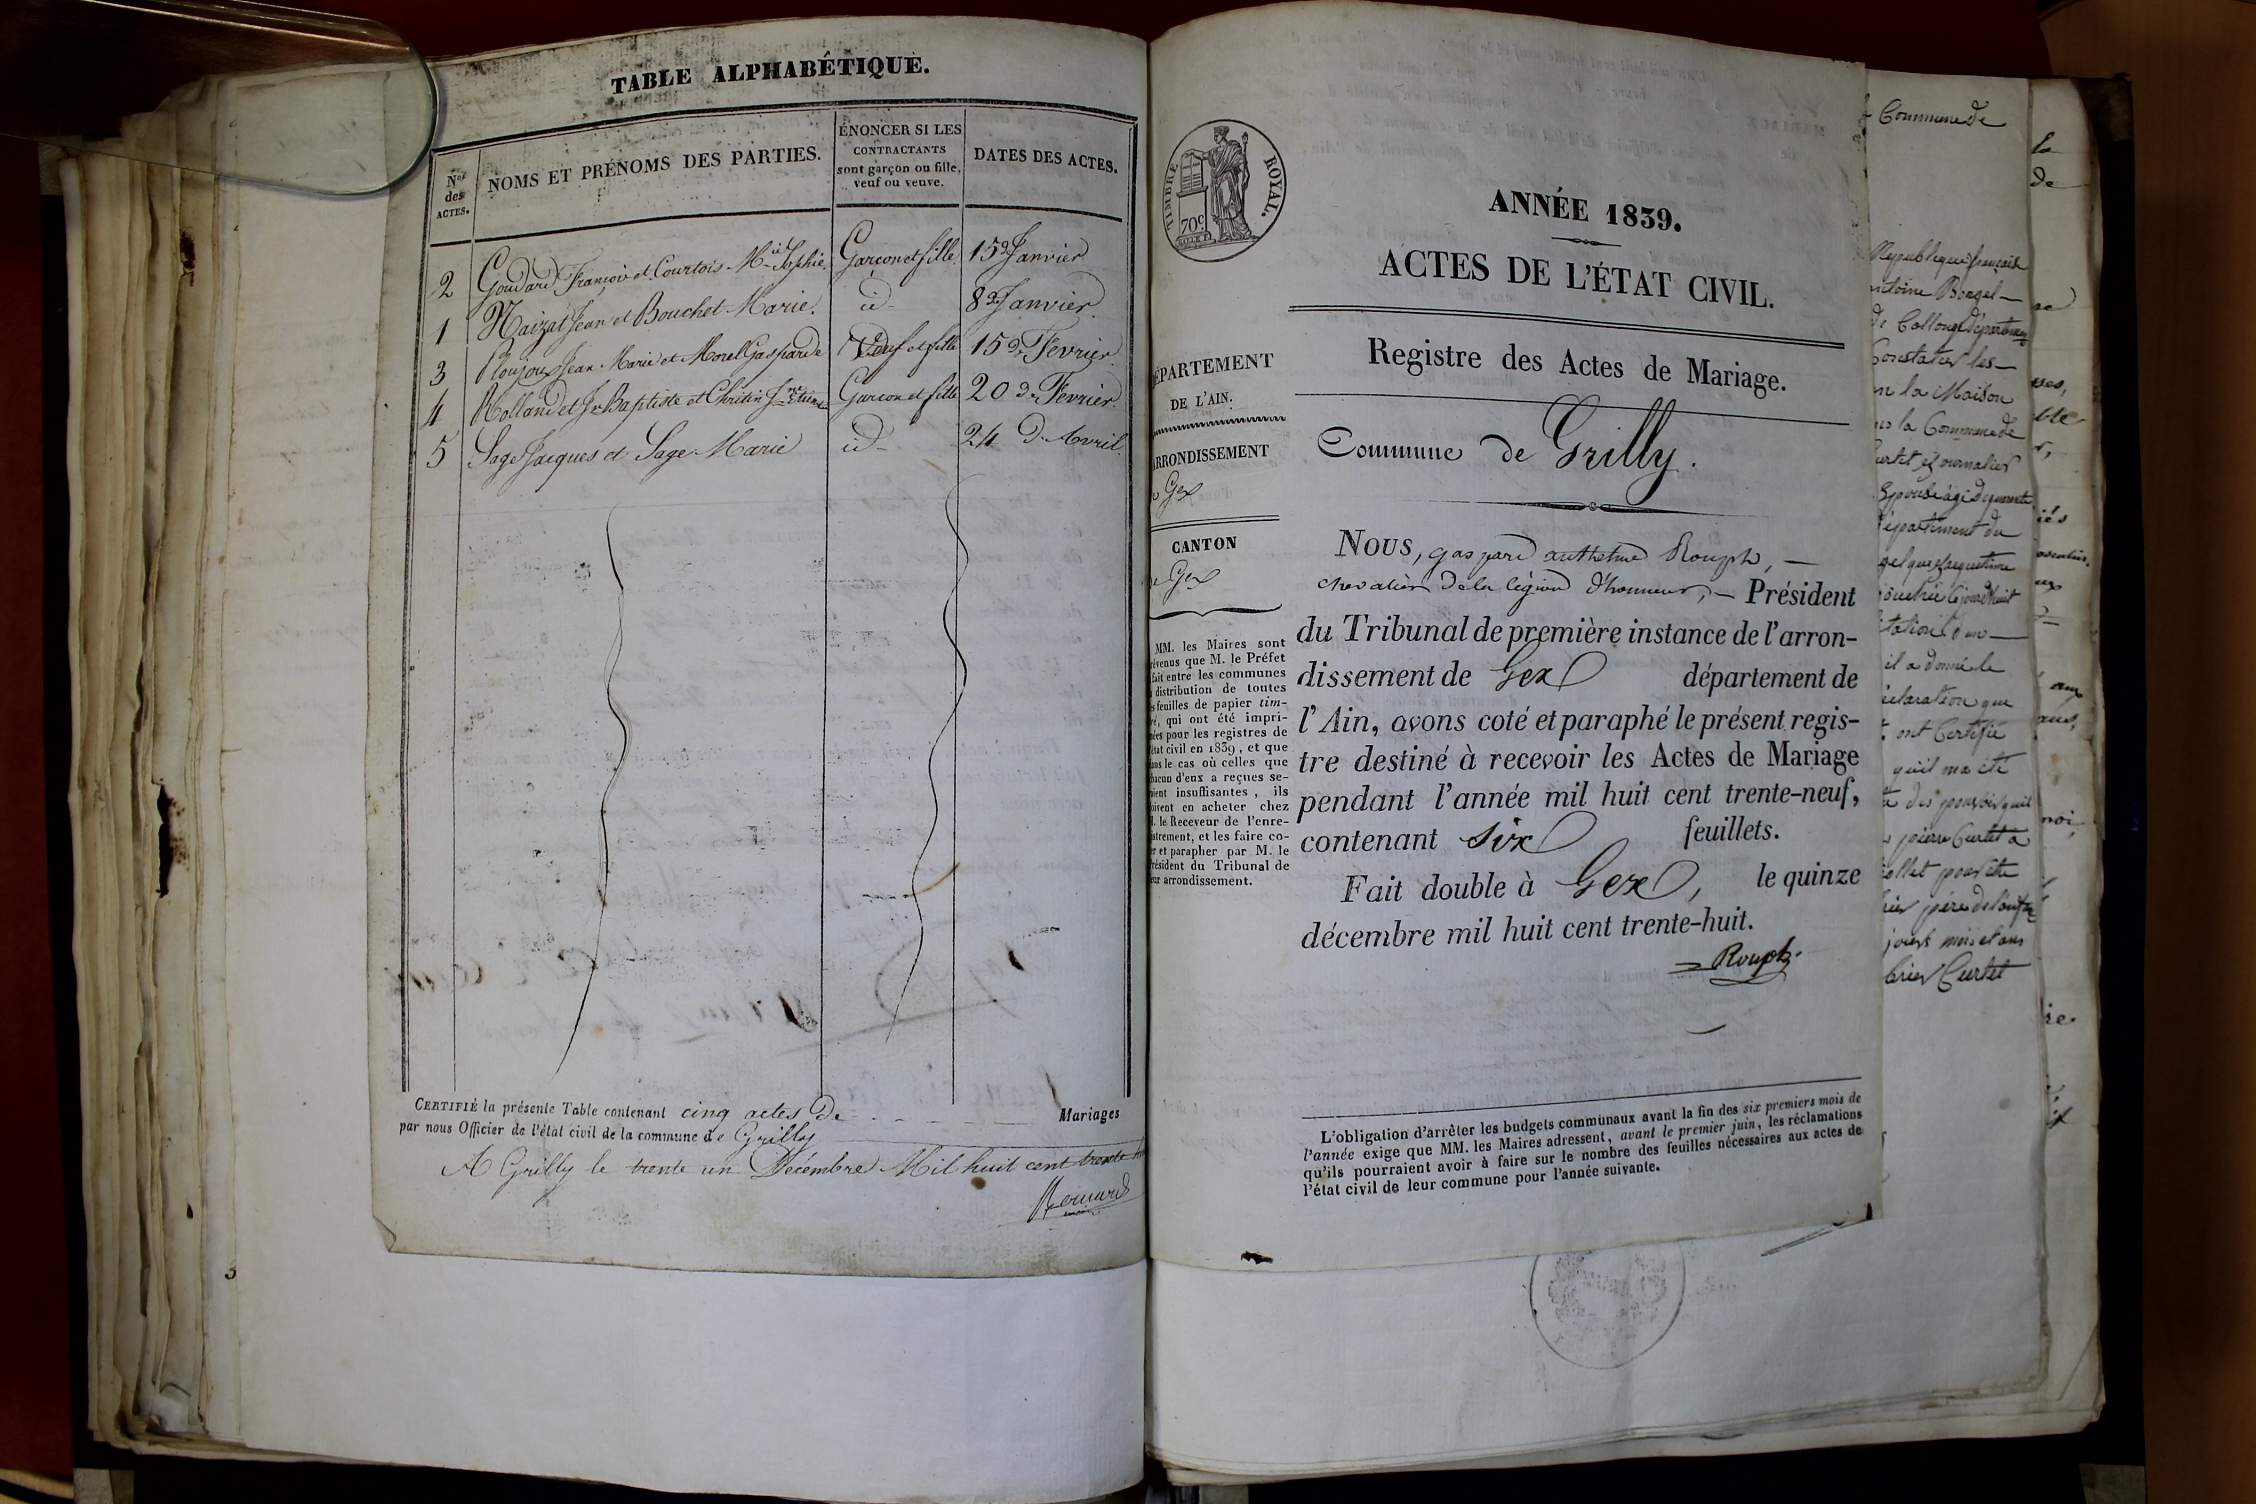 TABLE ALPHABÉTIQUE.
Nos des ACTES.
NOMS ET PRÉNOMS DES PARTIES.
ÉNONCER SI LES
CONTRACTANTS
sont garçon ou fille,
veuf ou veuve.
DATES DES ACTES.
2 Goudard François et Courtois Mie Sophie. Garçon et fille 15 de Janvier
1 Naizat Jean et Bouchet Marie. id- 8 de Janvier
3 Roujoux Jean Marie et Morel Gasparde Veuf et fille 15 de Fevrier
4 Rollandet Jn Baptiste et Chrétin Garcon et fille 20 de Fevrier
5 Sage Jacques et Sage Marie id- 24 d'Avril
CERTIFIÉ la présente Table contenant cinq actes de Mariages
par nous Officier de l'état civil de la commune de Grilly
A Grilly le trente un Décembre Mil huit cent trente
TIMBRE ROYAL.
70c
ANNÉE 1839.
ACTES DE L'ÉTAT CIVIL.
Registre des Actes de Mariage.
Commune de Grilly.
DÉPARTEMENT
DE L'AIN.
ARRONDISSEMENT
Gex
CANTON
de Gex
MM. les Maires sont
prévenus que M. le Préfet
fait entre les communes
distribution de toutes
feuilles de papier tim-
bré, qui ont été impri-
mées pour les registres de
l'état civil en 1839, et que
dans le cas où celles que
chacun d'eux a reçues se-
raient insuffisantes, ils
doivent en acheter chez
M. le Receveur de l'enre-
gistrement, et les faire co-
ter et parapher par M. le
Président du Tribunal de
leur arrondissement.
NOUS, gaspard anthelme Rouph,
chevalier de la légion d'honneur, Président
du Tribunal de première instance de l'arron-
dissement de Gex département de
l'Ain, avons coté et paraphé le présent regis-
tre destiné à recevoir les Actes de Mariage
pendant l'année mil huit cent trente-neuf,
contenant six feuillets.
Fait double à Gex, le quinze
décembre mil huit cent trente-huit.
Rouph.
L'obligation d'arrêter les budgets communaux avant la fin des six premiers mois de
l'année exige que MM. les Maires adressent, avant le premier juin, les réclamations
qu'ils pourraient avoir à faire sur le nombre des feuilles nécessaires aux actes de
l'état civil de leur commune pour l'année suivante.
Commune de
République française
de Collonge département
Constater les
la Maison
la Commune de
Curtet journalier
département du
il a donné le
déclaration que
ont Certifié
qu'il m'a été
pierre Curtet
Curtet